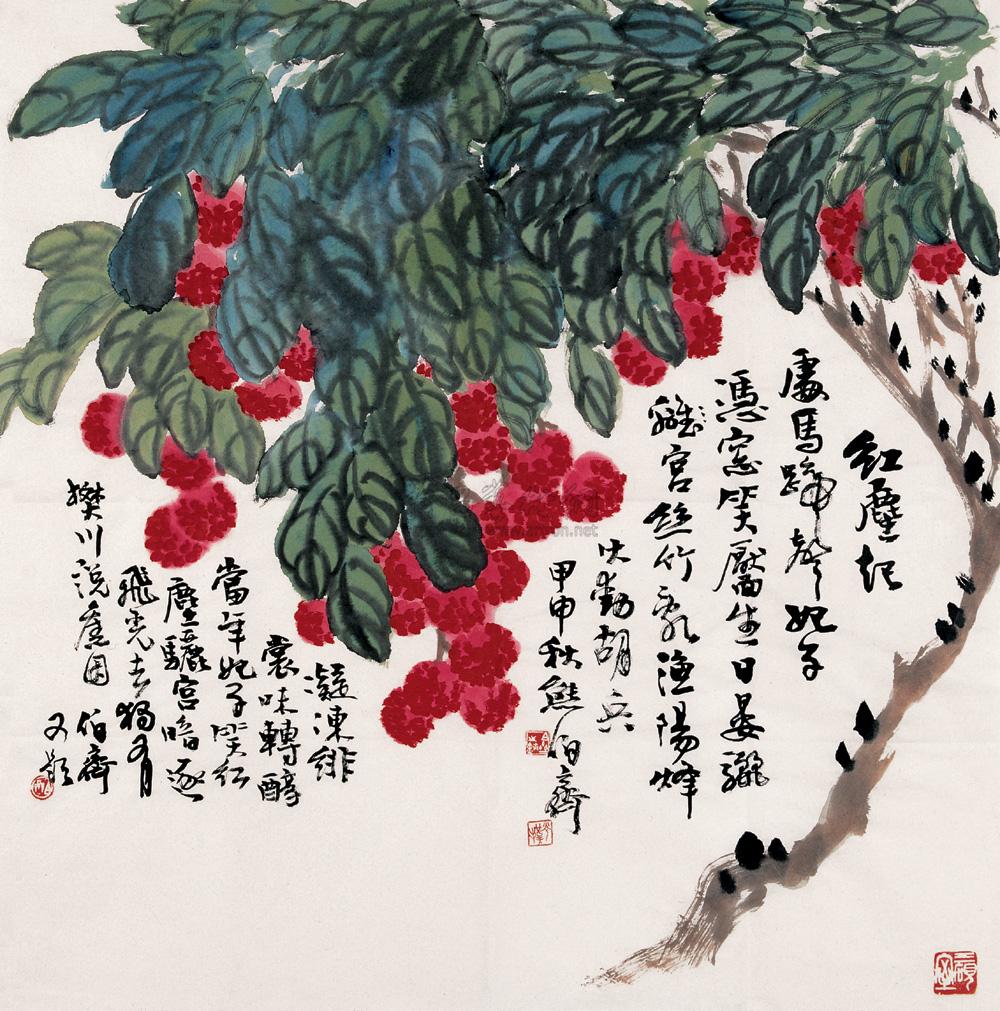 紅塵起
處馬蹄聲妃子
憑窗笑靨生日晏驪
宮絲竹亂漁陽烽
火動胡兵
甲申秋熊伯齊
凝凍緋
裳味轉醇
當年妃子笑紅
塵驪宮暗逐
飛光去獨有
樊川說舊因 伯齊
又題